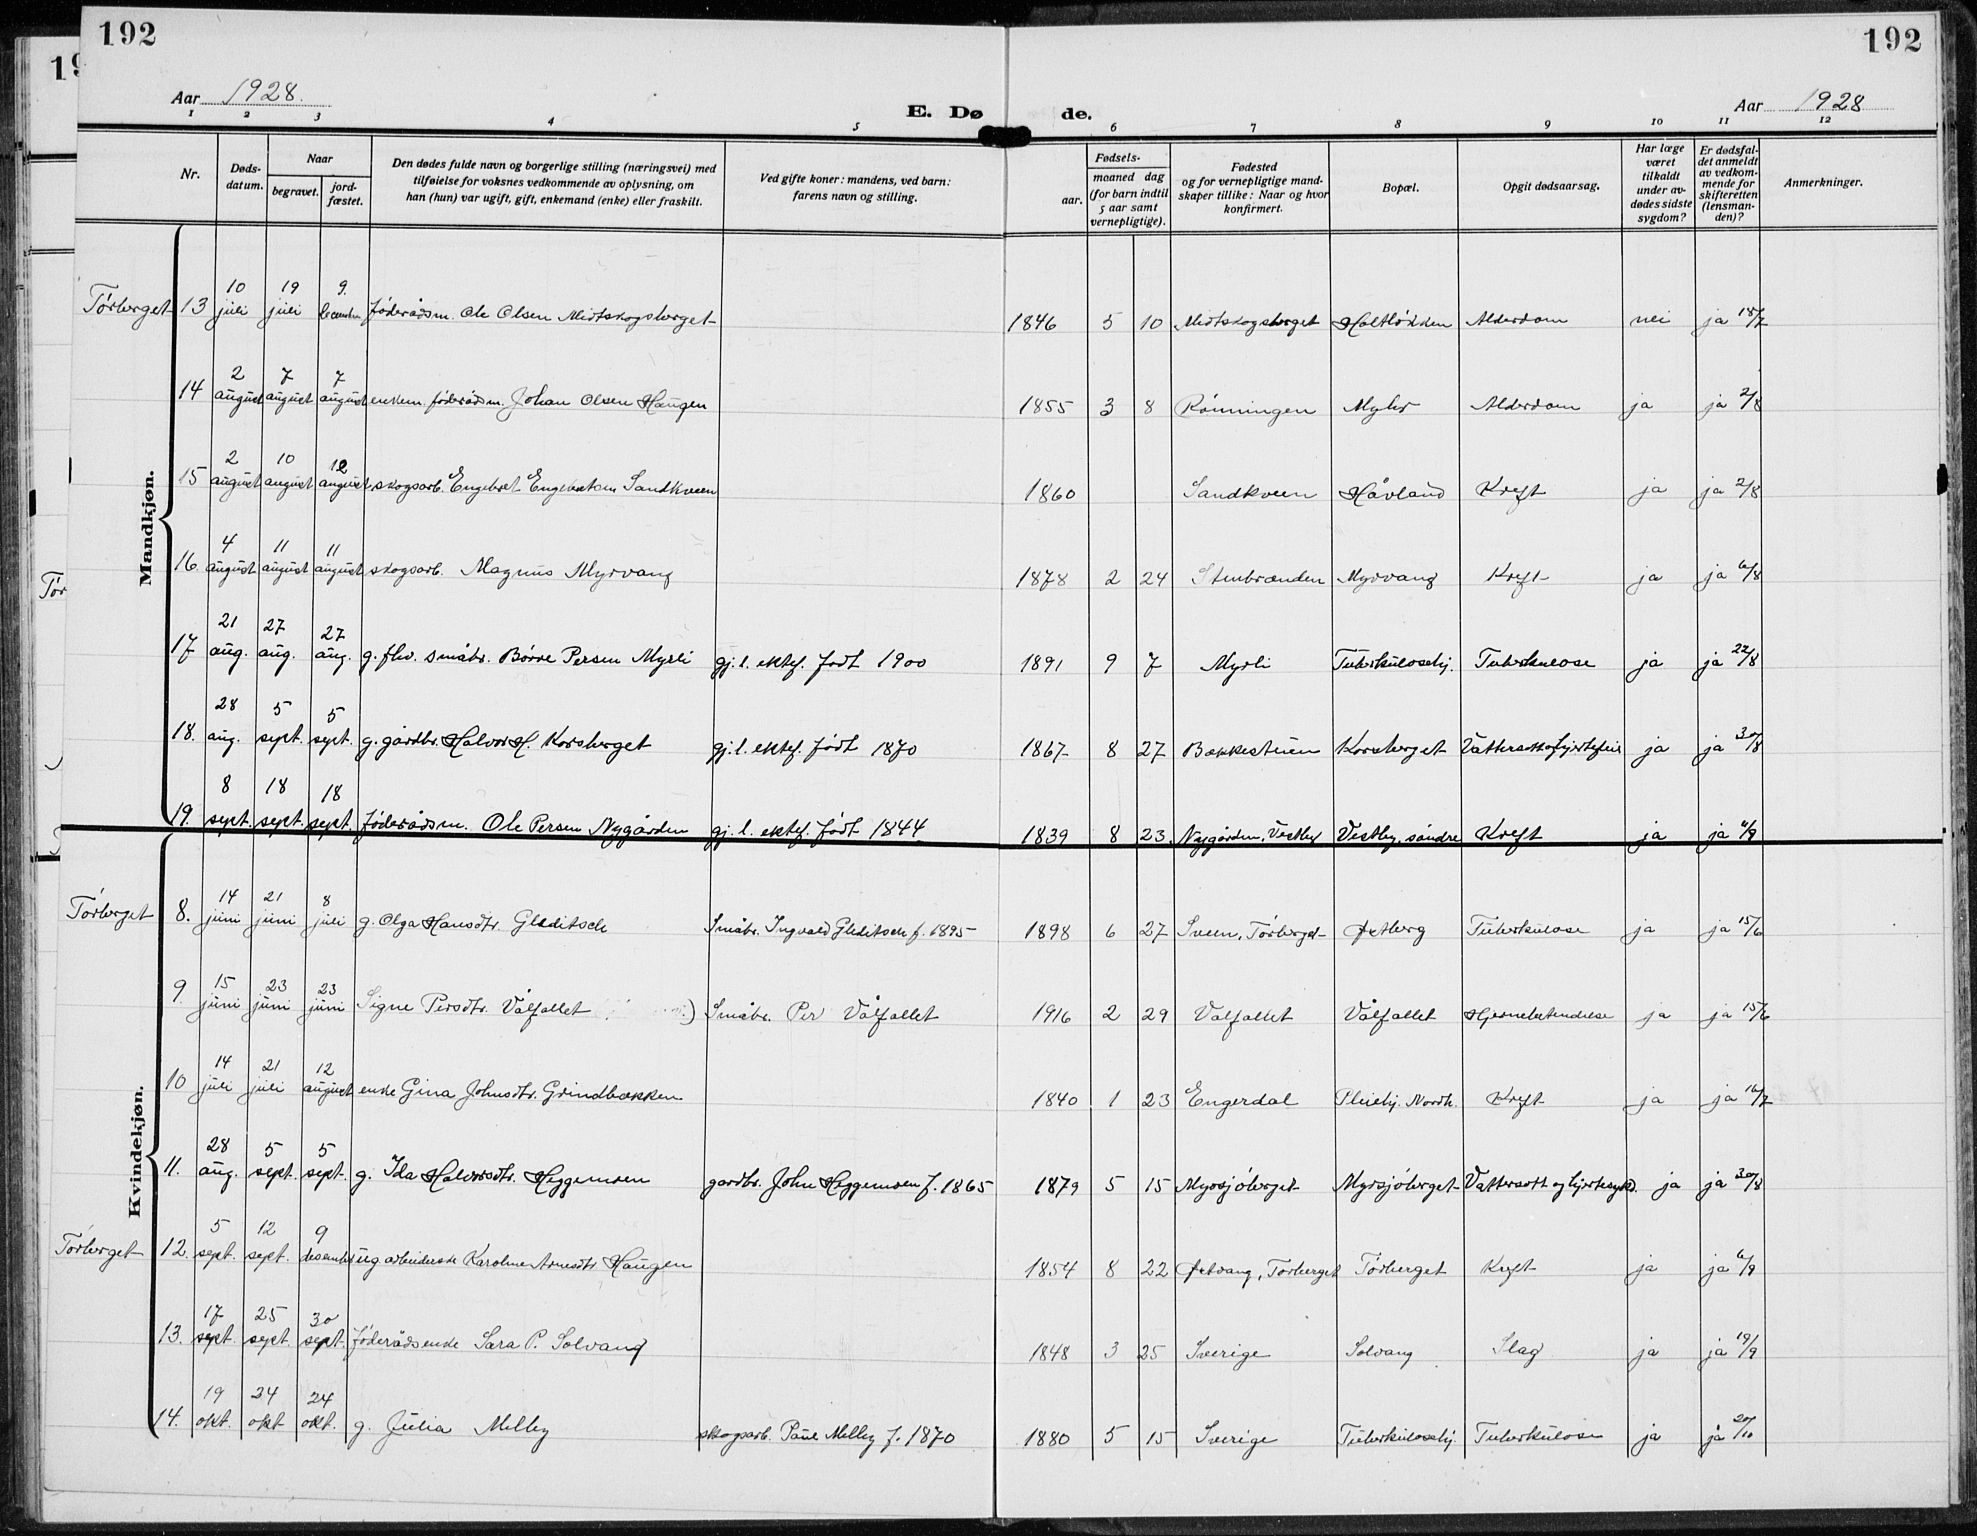 192
192
Aar 1928.
E. Dø
de.
Aar 1928
1 2 3 4 5 6 7 8 9 10 11 12
Nr.
Døds-
datum.
Naar
begravet.
jord-
fæstet.
Den dødes fulde navn og borgerlige stilling (næringsvei) med
tilføielse for voksnes vedkommende av oplysning, om
han (hun) var ugift, gift, enkemand (enke) eller fraskilt.
Ved gifte koner: mandens, ved barn:
farens navn og stilling.
Fødsels-
aar.
maaned dag
(for barn indtil
5 aar samt
vernepligtige).
Fødested
og for vernepligtige mand-
skaper tillike: Naar og hvor
konfirmert.
Bopæl.
Opgit dødsaarsag.
Har læge
været
tilkaldt
under av-
dødes sidste
sygdom?
Er dødsfal-
det anmeldt
av vedkom-
mende for
skifteretten
(lensman-
den)?
Anmerkninger.
Mandkjøn.
Tørberget 13 10 juli 19 juli 9. føderådsm. Ole Olsen Midtskogsberget 1846 5 10 Midtskogsberget Holtløkken Alderdom nei ja 18/7
14 2 august 7 august 7 august enkem. føderådsm. Johan Olsen Haugen 1855 3 8 Rønningen Myhr Alderdom ja ja 2/8
15 2 august 10 august 12 august skogsarb. Engebret Engebretsen Sandkveen 1860 Sandkveen Håvland Kreft ja ja 2/8
16. 4 august 11 august 11 august skogsarb. Magnus Myrvang 1878 2 24 Stenbrænden Myrvang Kreft ja ja 6/8
17 21 aug. 27 aug. 27 aug. g. fhv. småbr. Børre Persen Myrli gj. l. ektef. født 1900 1891 9 7 Myrli Tuberkulosehj. Tuberkulose ja ja 22/8
18. 28 aug. 5 sept. 5 sept. g. gårdbr. Halvor H. Korsberget gj. l. ektef. født 1870 1867 8 27 Bækkestuen Korsberget Vattersott og hjertefeil ja ja 30/8
19. 8 sept. 18 sept. 18 sept. føderådsm. Ole Persen Nygården gj. l. ektef. født 1844 1839 8 23 Nygården, Vestby Vestby søndre Kreft ja ja 11/9
Kvindekjøn.
Tørberget 8. 14 juni 21 juni 8 juli g. Olga Hansdtr. Gleditsch Småbr. Ingvald Gleditsch f. 1895 1898 6 27 Sveen, Tørberget Østberg Tuberkulose ja ja 15/6
9. 15 juni 23 juni 23 juni Signe Persdtr. Vålfallet ) Småbr. Per Vålfallet 1916 2 29 Vålfallet Vålfallet Hjernebetendelse ja ja 15/6
10 14 juli 21 juli 12 august enke Gina Johnsdtr. Grindbækken 1840 1 23 Engerdal Pleiehj. Nordh. Kreft ja ja 16/7
11. 28 aug. 5 sept. 5 sept. g. Ida Halvorsdtr. Heggemoen gardbr. John Heggemoen f. 1865 1879 5 15 Myrsjøberget Myrsjøberget Vattersott og hjertesykd. ja ja 30/8
Tørberget 12. 5 sept. 12 sept. 9 desember ug. arbeiderske Karoline Arnesdtr Haugen 1854 8 22 Østvang, Tørberget Tørberget Kreft ja ja 6/9
13. 17 sept. 25 sept. 30 sept. føderådsenke Sara P. Solvang 1848 3 25 Sverige Solvang Slag ja ja 19/9
14. 19 okt. 24 okt 24 okt. g. Julia Melby skogsarb. Paul Melby f. 1870 1880 5 15 Sverige Tuberkulosehj. Tuberkulose ja ja 20/10